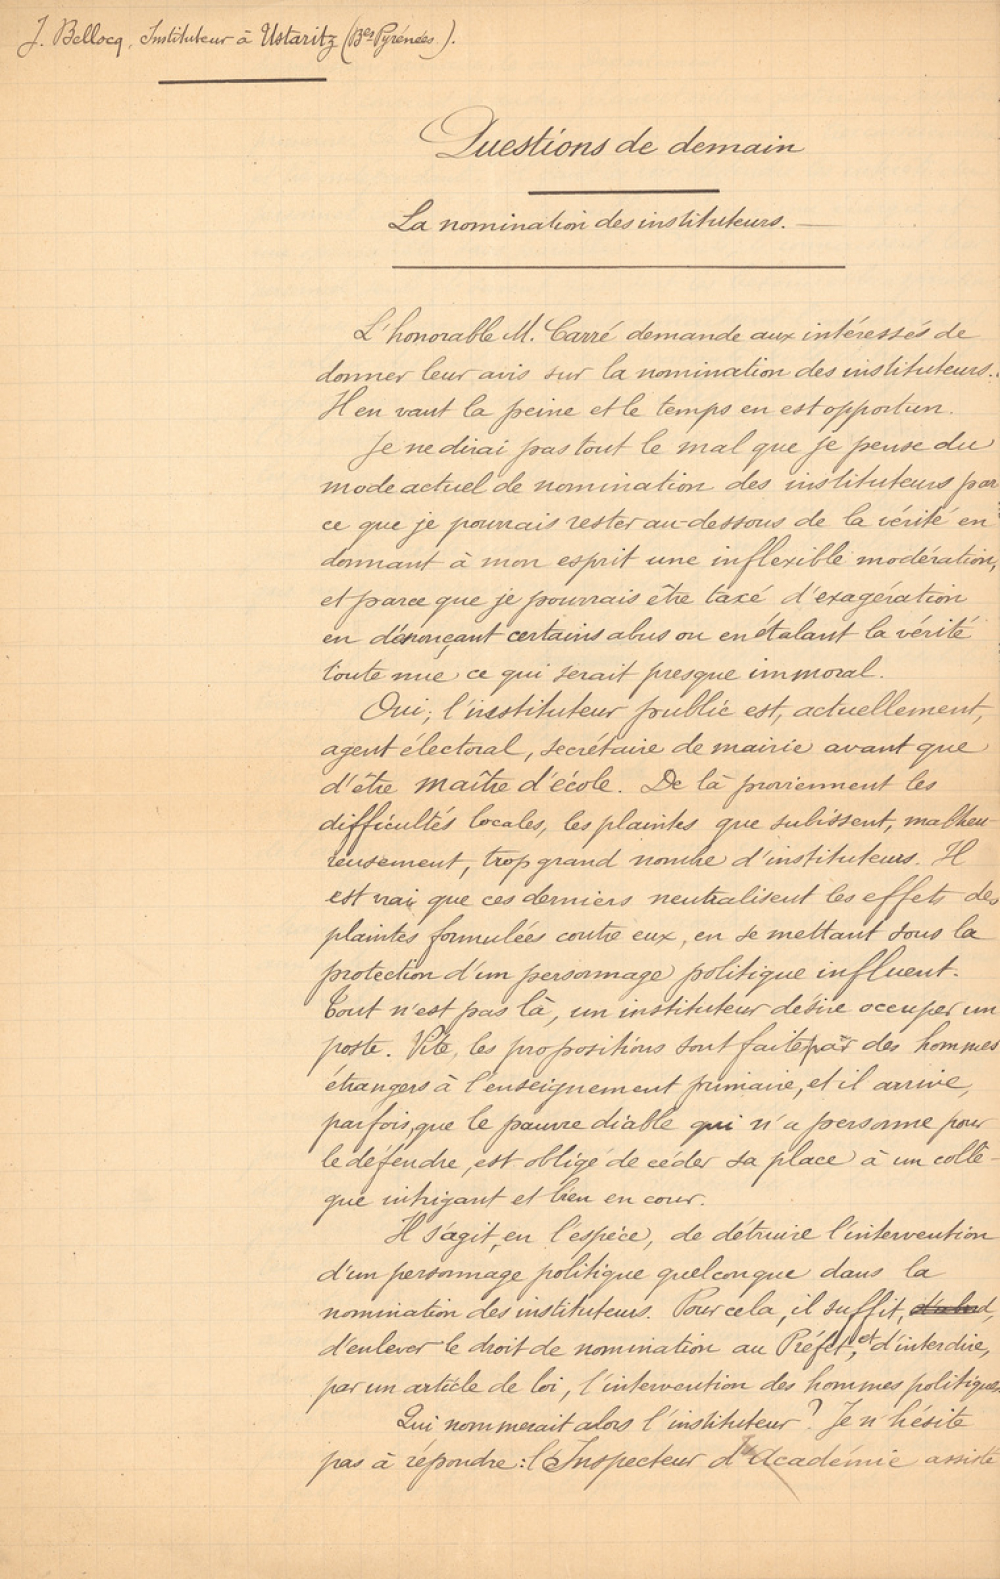 J. Bellocq, Instituteur à Ustaritz (Bses Pyrénées).
Questions de demain
La nomination des instituteurs.
L'honorable M. Carré demande aux intéressés de
donner leur avis sur la nomination des instituteurs.
Il en vaut la peine et le temps en est opportun.
Je ne dirai pas tout le mal que je pense du
mode actuel de nomination des instituteurs par
ce que je pourrais rester au-dessous de la vérité en
donnant à mon esprit une inflexible modération,
et parce que je pourrais être taxé d'exagération
en dénonçant certains abus ou en étalant la vérité
toute nue ce qui serait presque immoral.
Oui, l'instituteur public est, actuellement,
agent électoral, secrétaire de mairie avant que
d'être maître d'école. De là proviennent les
difficultés locales, les plaintes que subissent, malheu-
reusement, trop grand nombre d'instituteurs. Il
est vrai que ces derniers neutralisent les effets des
plaintes formulées contre eux, en se mettant sous la
protection d'un personnage politique influent.
Tout n'est pas là, un instituteur désire occuper un
poste. Vite, les propositions sont faites par des hommes
étrangers à l'enseignement primaire, et il arrive,
parfois, que le pauvre diable qui n'a personne pour
le défendre, est obligé de céder sa place à un collè-
gue intrigant et bien en cour.
Il s'agit, en l'espèce, de détruire l'intervention
d'un personnage politique quelconque dans la
nomination des instituteurs. Pour cela, il suffit, d'abord,
d'enlever le droit de nomination au Préfet, et d'interdire,
par un article de loi, l'intervention des hommes politiques.
Qui nommerait alors l'instituteur? Je n'hésite
pas à répondre: l'Inspecteur d'Académie assisté